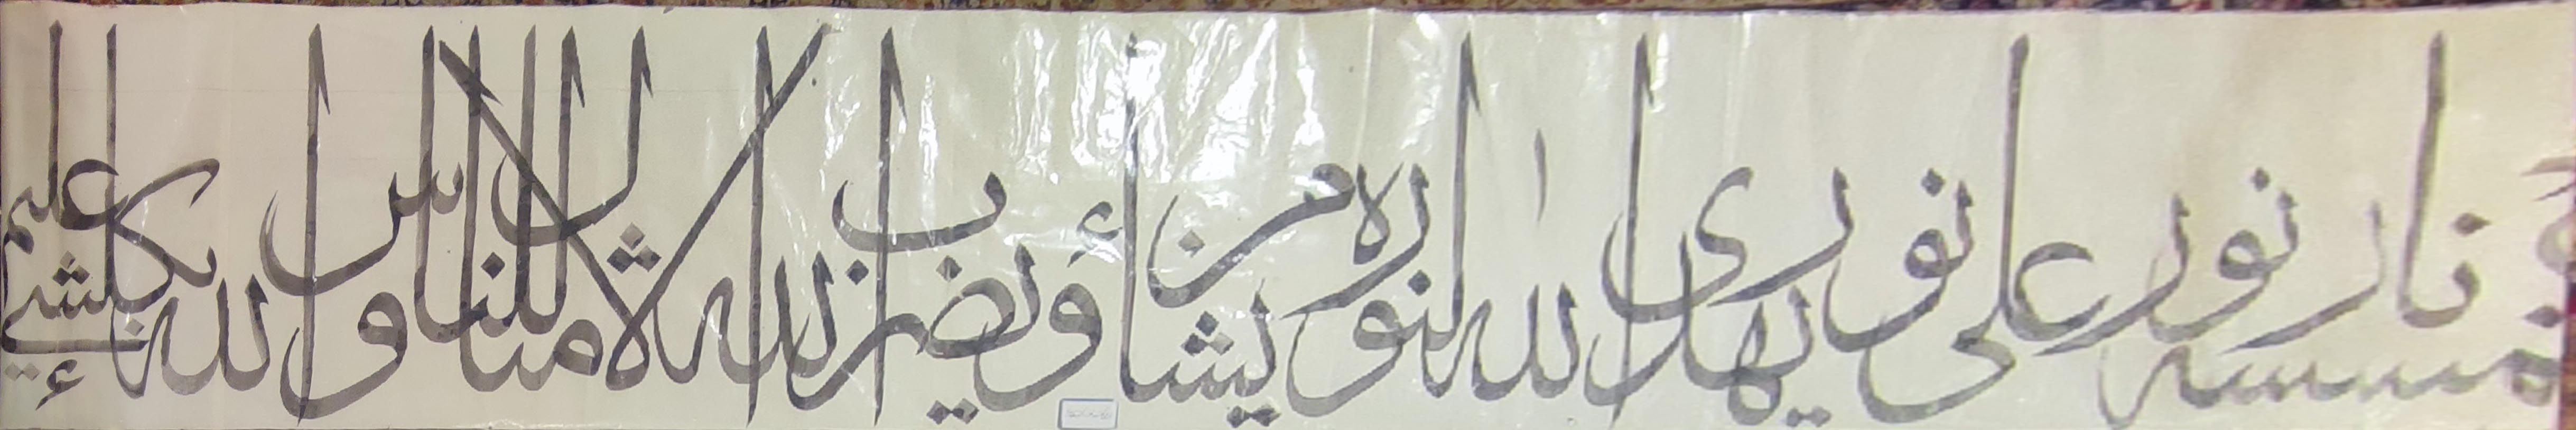 تمسسه نار نور على نور يهدى الله لنوره من يشاء ويضرب الله الأمثال للناس والله بكل شىء عليم